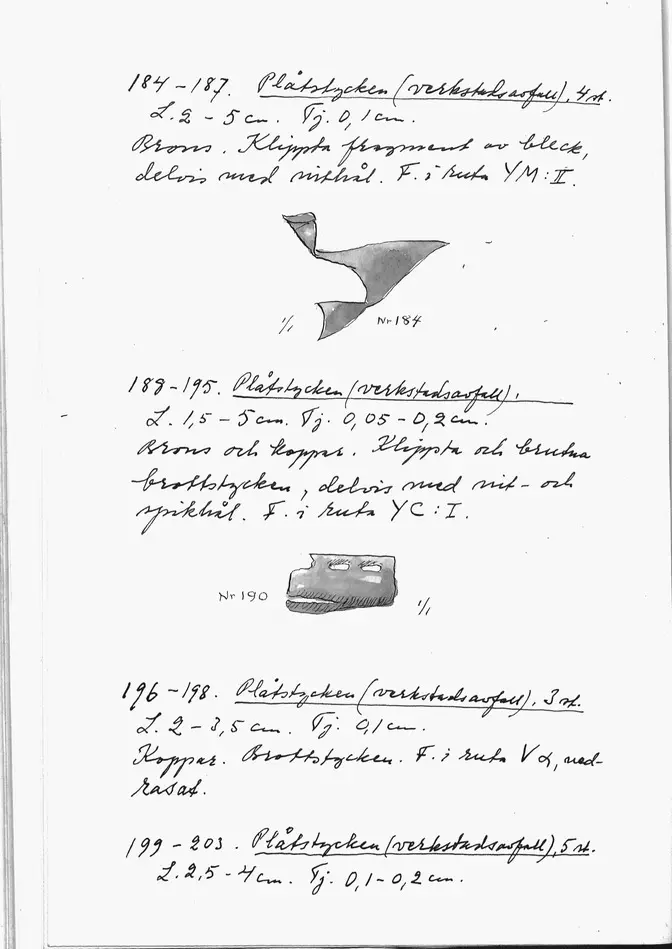 184-187. Plåtstycken (verkstadsavfall), 4 st.
L. 2 - 5 cm. Tj. 0,1 cm.
Brons. Klippta fragment av bleck,
delvis med nithål. F. i ruta YM:II.
1/1 Nr 184
188-195. Plåtstycken (verkstadsavfall).
L. 1,5 - 5 cm. Tj. 0,05 - 0,2 cm.
Brons och koppar. Klippta och brutna
brottstycken, delvis med nit- och
spikhål. F. i ruta YC:I.
Nr 190 1/1
196-198. Plåtstycken (verkstadsavfall), 3 st.
L. 2 - 3,5 cm. Tj. 0,1 cm.
Koppar. Brottstycken. F. i ruta V α, ned-
rasat.
199 - 203. Plåtstycken (verkstadsavfall), 5 st.
L. 2,5 - 4 cm. Tj. 0,1 - 0,2 cm.